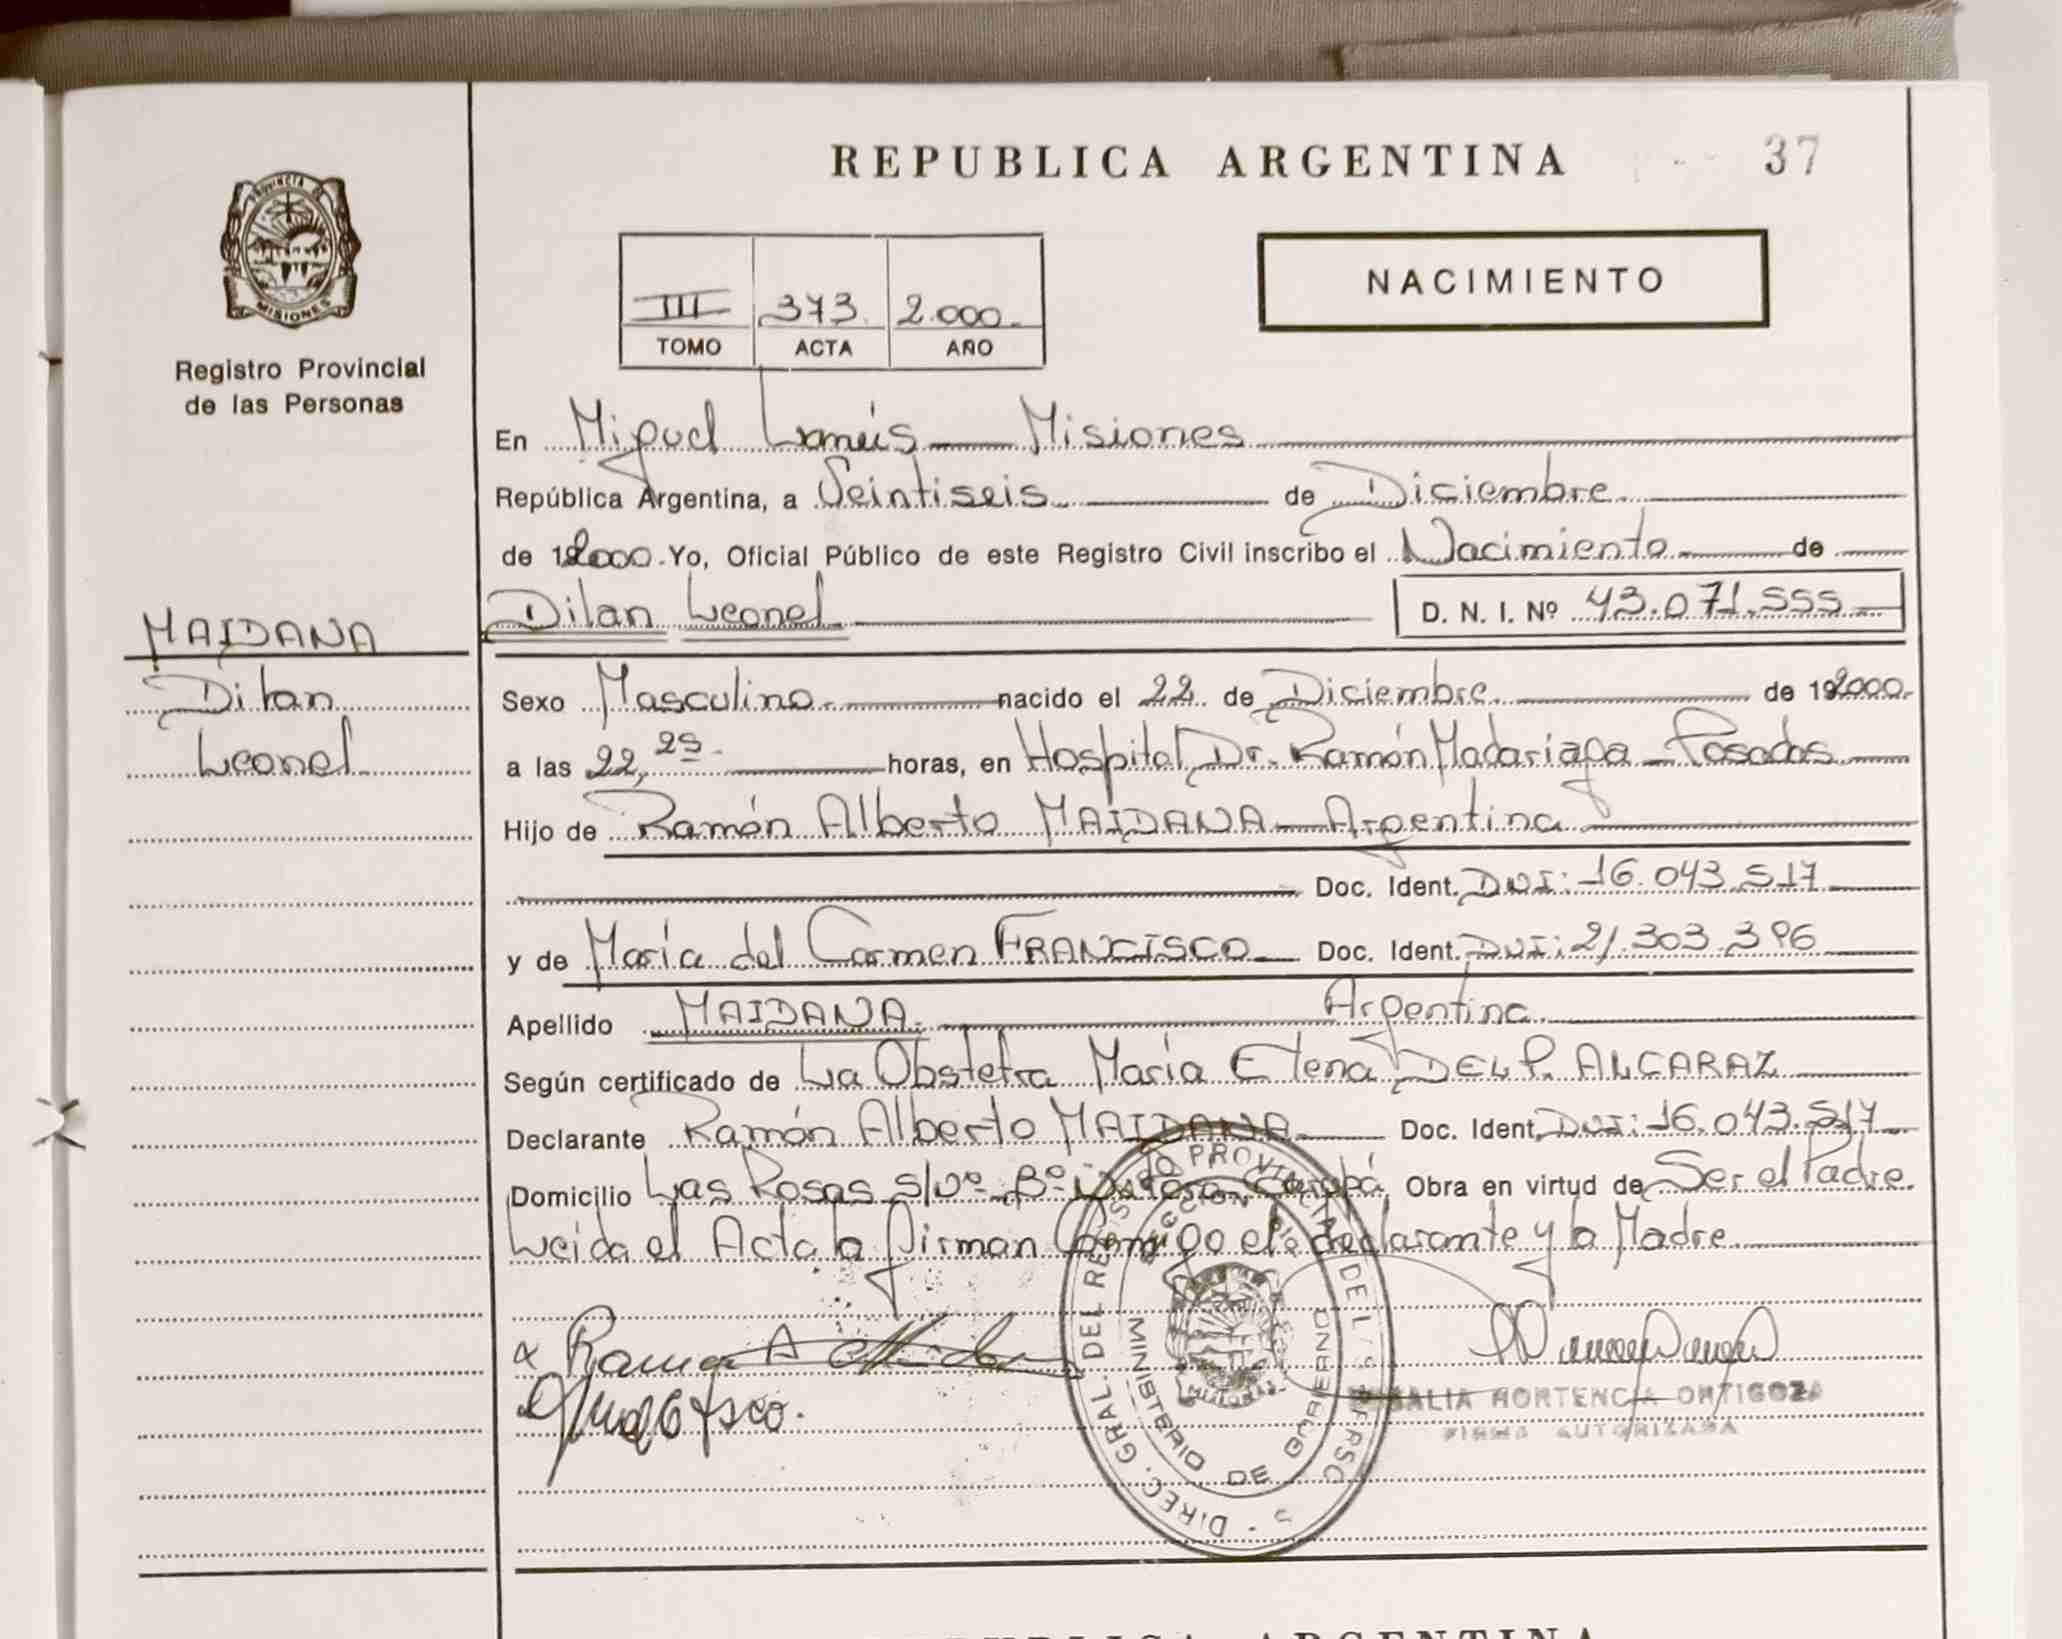 REPUBLICA ARGENTINA
37
PROVINCIA DE
MISIONES
Registro Provincial
de las Personas
III 373 2.000.-
TOMO ACTA AÑO
NACIMIENTO
En Miguel Lanús Misiones
República Argentina, a Veintiseis de Diciembre.
de 192000. Yo, Oficial Público de este Registro Civil inscribo el Nacimiento de
MAIDANA
Dilan Leonel
D. N. I. Nº 43.071.555
Dilan
Leonel
Sexo Masculino nacido el 22 de Diciembre. de 192000.
a las 22,25 horas, en Hospital Dr. Ramón Madariaga - Posadas
Hijo de Ramón Alberto MAIDANA - Argentina
Doc. Ident. DNI: 16.043.517
y de María del Carmen FRANCISCO Doc. Ident. DNI: 21.303.396
Apellido MAIDANA. Argentina
Según certificado de La Obstetra María Elena DEL P. ALCARAZ
Declarante Ramón Alberto MAIDANA Doc. Ident. DNI: 16.043.517
Domicilio Las Rosas s/Nº Bº Obra en virtud de Ser el Padre
Leida el Acta la firman Conmigo el declarante y la Madre
DIREC. GRAL. DEL REGISTRO PROVINCIAL DE
MINISTERIO DE GOBIERNO
MISIONES
HORTENCIA ORTIGOZA
FIRMA AUTORIZADA
REPUBLICA ARGENTINA